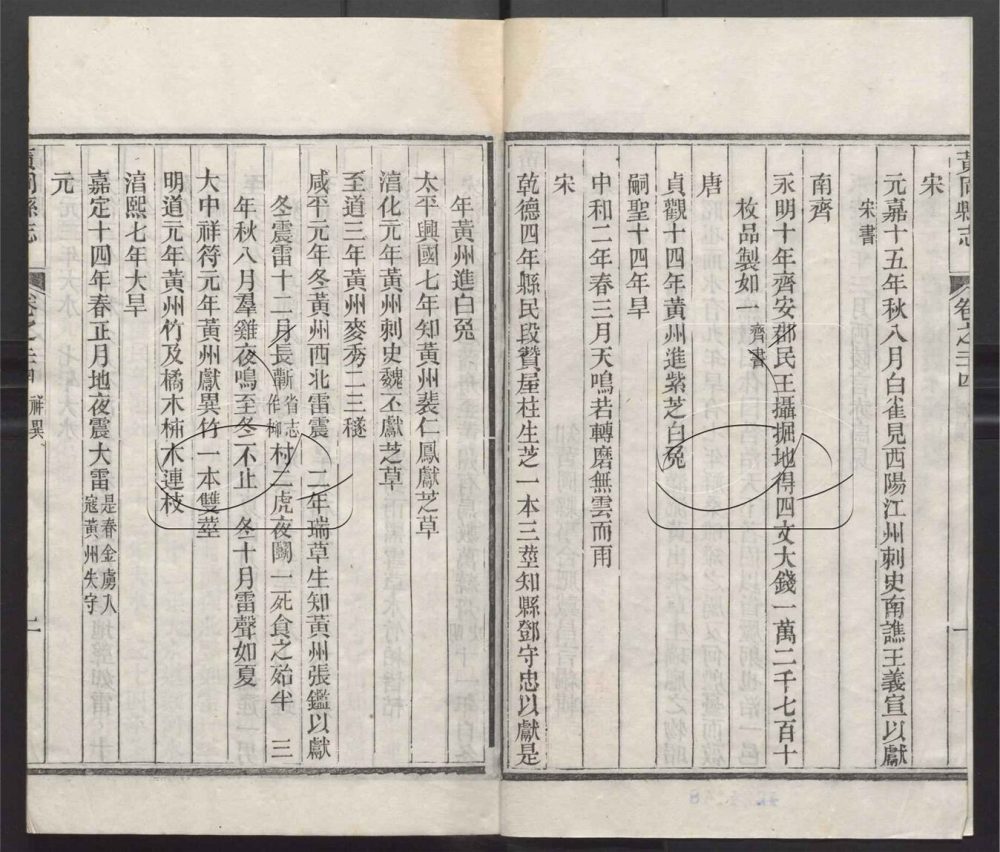 黃岡縣志
卷之二十四
一
宋
元嘉十五年秋八月白雀見西陽江州刺史南譙王義宣以獻
宋書
南齊
永明十年齊安郡民王攝掘地得四文大錢一萬二千七百十
枚品製如一 齊書
唐
貞觀十四年黃州進紫芝白兔
嗣聖十四年旱
中和二年春三月天鳴若轉磨無雲而雨
宋
乾德四年縣民段贊屋柱生芝一本三莖知縣鄧守忠以獻是
年黃州進白兔
太平興國七年知黃州裴仁鳳獻芝草
淯化元年黃州刺史魏丕獻芝草
至道三年黃州麥秀二三穟
咸平元年冬黃州西北雷震 二年瑞草生知黃州張鑑以獻
冬震雷十二月長蘄省志作柳村二虎夜鬬一死食之殆半 三
年秋八月羣雞夜鳴至冬不止 冬十月雷聲如夏
大中祥符元年黃州獻異竹一本雙莖
明道元年黃州竹及橘木柿木連枝
淯熙七年大旱
嘉定十四年春正月地夜震大雷是春金虜入寇黃州失守
元
黃岡縣志
卷之二十四 祥異
二